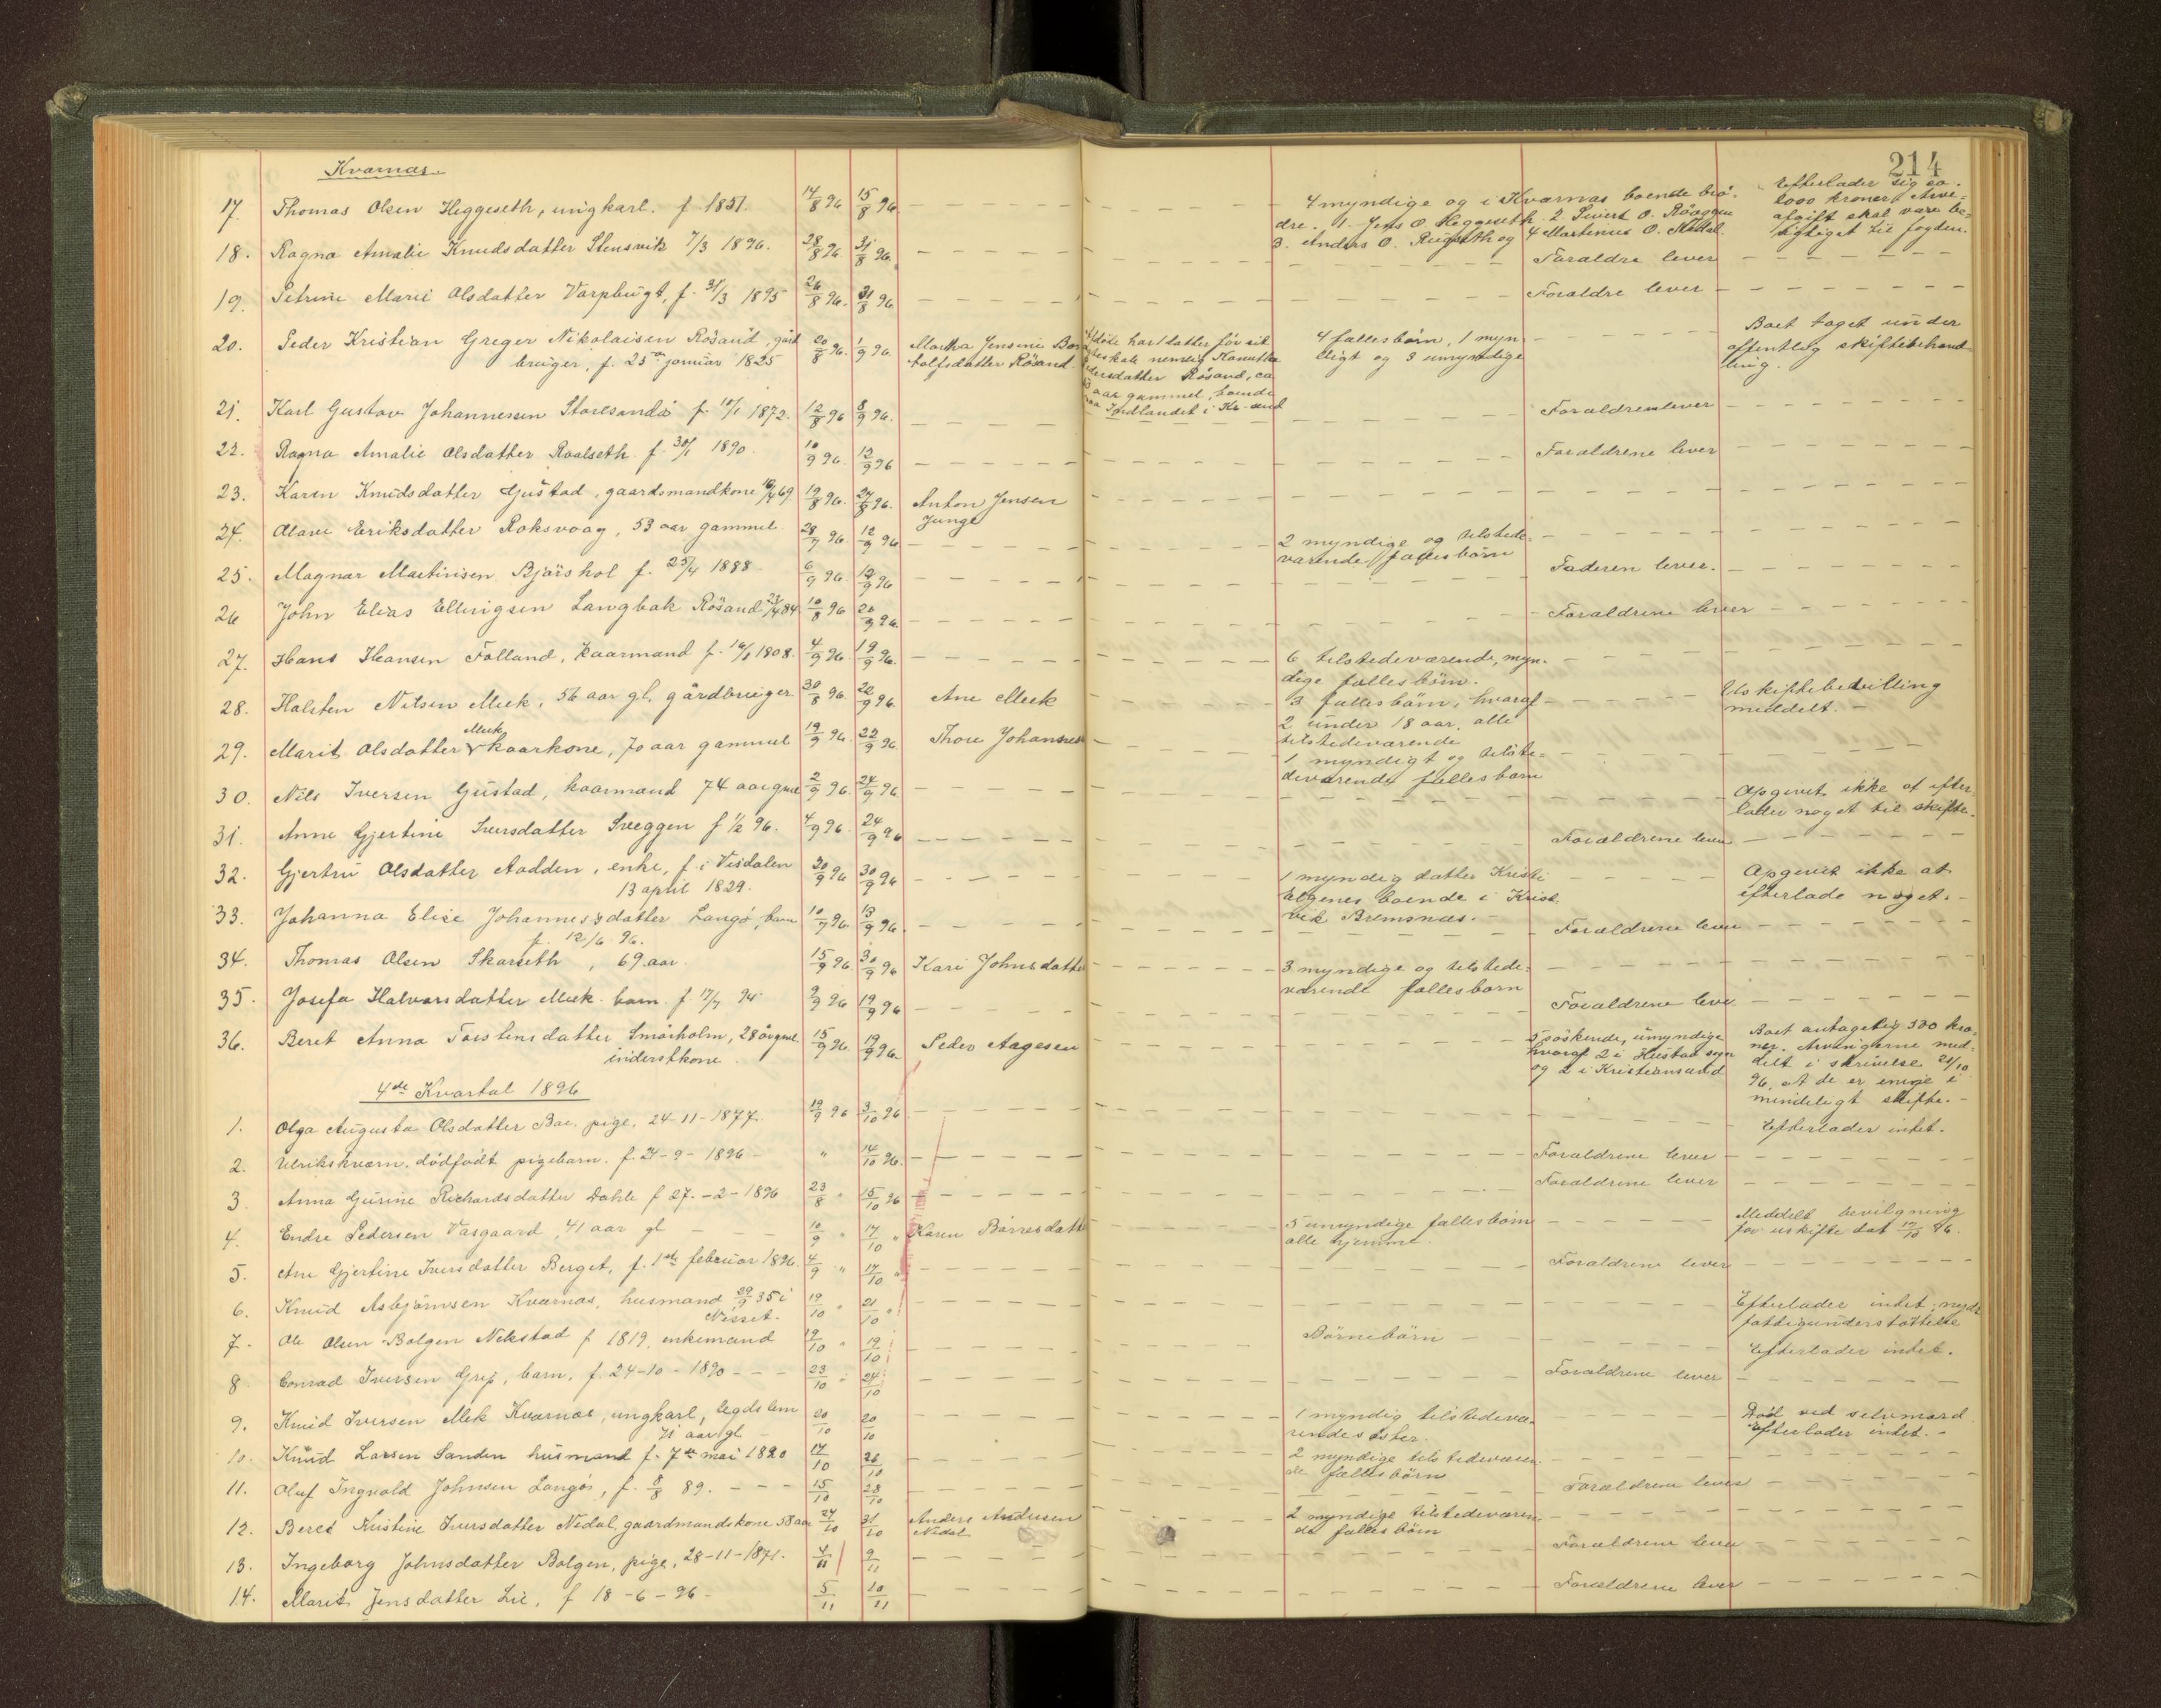 214
Kværnæs.
17. Thomas Olsen Heggeseth, ungkarl. f. 1851. 14/8 96 15/8 96. 4 myndige og i Kværnæs boende brö- Efterlader sig ca.
dre. 1. Jens O. Heggeseth. 2 Sivert O. 2000 kroner. Arve-
3. Anders O. og 4 Martinus O. afgift skal være be-
rigtiget til fogden.
18. Ragna Amalie Knudsdatter Stensvik 7/3 1896. 28/8 96. 31/8 96. Foraldre lever
19. Petrine Marie Olsdatter Varpbugt, f. 31/3 1895 26/8 96. 31/8 96 Foraldre lever
20. Peder Kristian Greger Nikolaisen Rösand, gård 20/8 96. 1/9 96. Martha Jensine Bor 4 fællesbörn, 1 myn- Boet taget under
bruger, f. 25de januar 1825 tolfsdatter Rösand. digt og 3 umyndige offentlig skiftebehand-
ling.
döde har 1 datter för sit
nemlig
datter Rösand, ca
aar gammel, boende
paa Indlandet i Kr. sund
21. Karl Gustav Johannesen Storesandö f. 10/1 1872. 12/8 96 8/9 96. Foraldrene lever
22. Ragna Amalie Olsdatter Roalseth f. 30/1 1890. 10/9 96. 12/9 96 Foraldrene lever
23. Karen Knudsdatter Gustad, gaardsmandkone 69 19/8 96. 27/8 96. Anton Jensen
Junge
24. Eriksdatter Roksvaag, 53 aar gammel 28/7 96 12/9 96 2 myndige og tilstede-
værende fællesbörn
25. Magnar Martinisen Bjørshol f. 25/4 1888. 6/9 96. 12/9 96 Faderen lever.
26 John Elias Ellingsen Langbak Rösand 84. 10/8 96 20/9 96. Foraldrene lever
27. Hans Hansen Folland, kaarmand f. 16/1 1808. 4/9 96. 19/9 96. 6 tilstedeværende, myn-
dige fællesbörn.
28. Halsten Nilsen Meek, 56 aar gl, gårdbruger 30/8 96. 22/9 96. Ane Meek 3 fællesbörn, hvoraf Uskiftebevilling
2 under 18 aar, alle meddelt. -
tilstedeværende
29. Marit Olsdatter Meek kaarkone, 70 aar gammel 19/9 96. 22/9 96 Thore Johannes 1 myndigt og tilste-
deværende fællesbarn
30. Nils Iversen Gustad, kaarmand 74 aar gml 2/9 96. 24/9 96. Opgivet ikke at efter-
lader noget til skifte.
31. Anne Gjertine Iversdatter Sveggen f 1/2 96. 4/9 96. 24/9 96 Forældrene lever
32. Gjertru Olsdatter Aadden, enke, f. i Visdalen 20/9 96 30/9 96 1 myndig datter Kristi Opgivet ikke at
13 april 1829. Elgenes boende i Krist- efterlade noget. -
vik Bremsnæs. -
33. Johanna Elise Johannesdatter Langö, barn 10/7 96. 13/9 96. Forældrene lever
f. 12/6 96.
34. Thomas Olsen Skarseth, 69. aar. 15/9 96. 30/9 96 Kari Johnsdatter 3 myndige og tilstede-
værende fællesbarn
35. Josefa Halvorsdatter Meek barn. f 17/7 94 9/9 96 19/9 96 Forældrene leve
36. Beret Anna Torstensdatter Smörholm, 28 år gml. 15/9 96. 19/9 96. Peder Aagesen 5 söskende, umyndige Boet antagelig 500 kro-
inderstkone. hvoraf 2 i Hustad sogn ner. Arvingerne med-
og 2 i Kristiansund delt i skrivelse 21/10
96, at de er enige i
mindeligt skifte. -
4de Kvartal 1896
1. Olga Augusta Olsdatter Boe, pige, 24-11-1877. 19/9 96 3/10 96 Efterlader intet.
2. Ulrikskværn, dödfödt pigebarn. f. 21-9-1896 - " 14/10 96. Forældrene lever
3. Anna Gurine Richardsdatter Dahle f 27.-2-1896 23/8 " 15/10 96 Forældrene lever
4. Endre Pedersen Vasgaard, 41 aar gl - 10/9 " 17/10 " Karen Börresdatt 5 umyndige fællesbörn Meddelt bevilgning
alle hjemme. for uskifte dat 17/10 96.
5. Ane Gjertine Iversdatter Berget, f. 1ste februar 1896. 4/9 " 17/10 " Forældrene lever
6. Knud Asbjörnsen Kværnæs, husmand 29/9 35 i 19/10 " 21/10 " Efterlader intet, nydt
Nesset. fattigunderstöttelse
7. Ole Olsen Bolgen Nekstad f 1819, enkemand 12/10 " 19/10 Börnebörn Efterlader intet.
8 Conrad Iversen Grip, barn, f. 24-10-1890 - - - 23/10 " 24/10 Forældrene lever
9. Knud Iversen Mek Kværnæs, ungkarl, legdslem 20/10 20/10 1 myndig tilstedevæ- Död ved selvmord.
71 aar gl rende söster. Efterlader intet. -
10. Knud Larsen Sanden husmand f. 7de mai 1820 17/10 26/10 2 myndige tilstedeværen-
de fællesbörn
11. Oluf Ingvald Johnsen Langöi, f. 8/8 89. - - - 15/10 28/10 Forældrene lever
12. Beret Kristine Iversdatter Nedal, gaardmandskone 58 aar 27/10 31/10 Anders Andersen 2 myndige tilstedeværen-
Nedal de fællesbörn
13. Ingeborg Johnsdatter Bolgen, pige, 28-11-1871. 4/11 9/11 Forældrene lever
14. Marit Jensdatter Lie, f 18-6-96 - 5/11 10/11 Forældrene lever